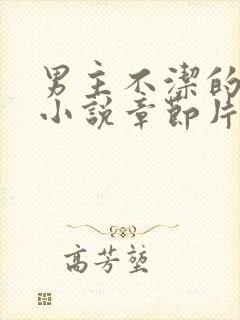 男主不潔的
小說章節片
高芳堃